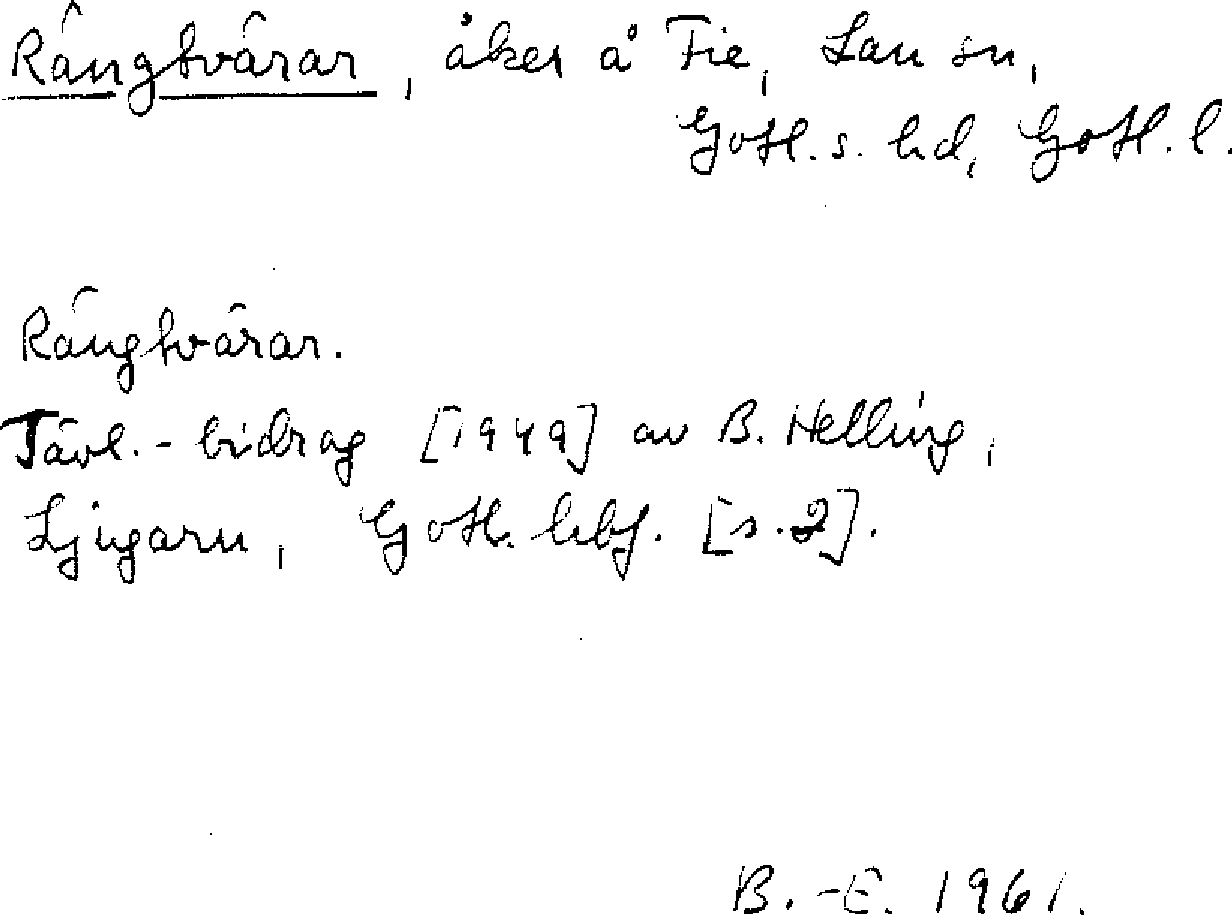 Rângtvârar, åker å Fie, Lau sn,
Gotl. s. hd, Gotl. l.
Rângtvârar.
Tävl.-bidrag [1949] av B. Helling,
Ljugarn, Gotl. hbf. [s. 2].
B.-E. 1961.